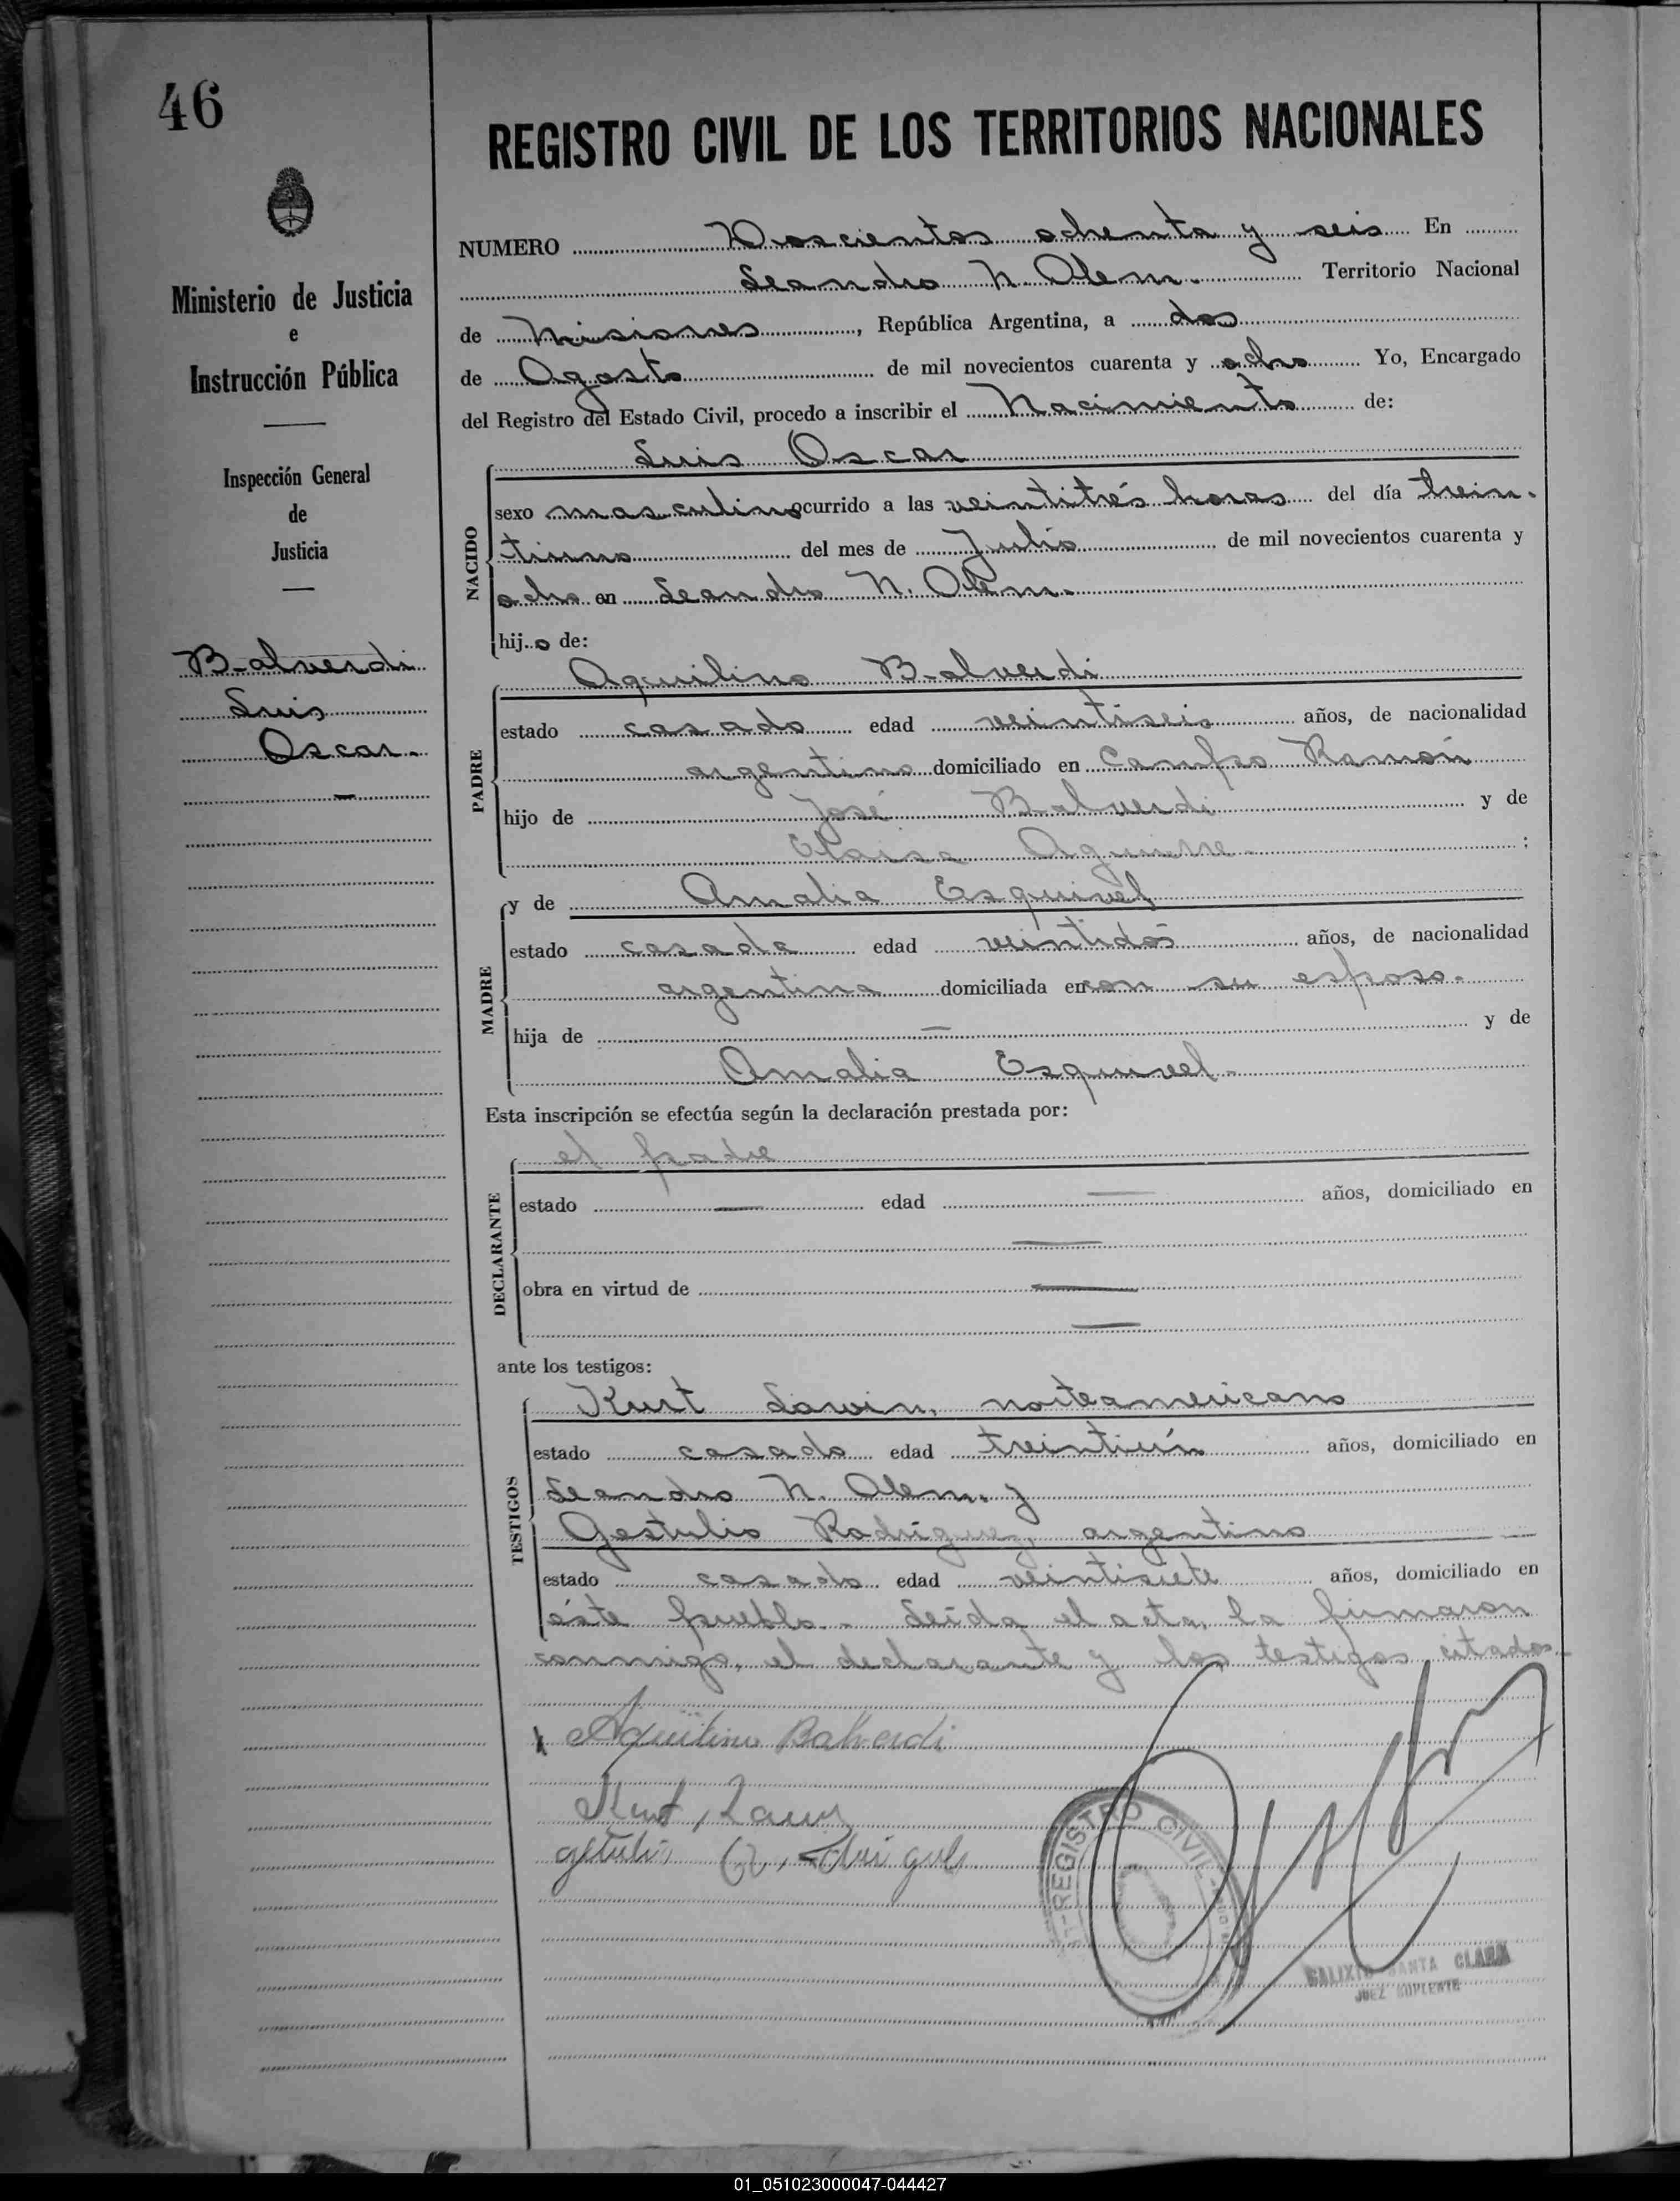 46
REGISTRO CIVIL DE LOS TERRITORIOS NACIONALES
Ministerio de Justicia
e
Instrucción Pública
Inspección General
de
Justicia
Balverdi
Luis
Oscar.
NUMERO Doscientos ochenta y seis En
Leandro N. Alem. Territorio Nacional
de Misiones, República Argentina, a dos
de Agosto de mil novecientos cuarenta y ocho Yo, Encargado
del Registro del Estado Civil, procedo a inscribir el Nacimiento de:
NACIDO
Luis Oscar
sexo masculino ocurrido a las veintitrés horas del día trein-
tiuno del mes de Julio de mil novecientos cuarenta y
ocho en Leandro N. Alem.
hijo de:
PADRE
Aquilino Balverdi
estado casado edad veintiseis años, de nacionalidad
argentino domiciliado en Campo Ramón
hijo de José Balverdi y de
Aguirre ;
MADRE
y de Amalia Esquivel
estado casada edad veintidós años, de nacionalidad
argentina domiciliada en con su esposo.
hija de — y de
Amalia Esquivel.
Esta inscripción se efectúa según la declaración prestada por:
DECLARANTE
el padre
estado — edad — años, domiciliado en
—
obra en virtud de —
—
ante los testigos:
TESTIGOS
Kurt Lawin, norteamericano
estado casado edad treintiún años, domiciliado en
Leandro N. Alem. y
Gestulio Rodríguez, argentino
estado casado edad veintisiete años, domiciliado en
éste pueblo. Leída el acta, la firmaron
conmigo, el declarante y los testigos citados.
Aquilino Balverdi
Kurt
REGISTRO CIVIL
CALIXTO SANTA CLARA
JUEZ SUPLENTE
01_051023000047-044427